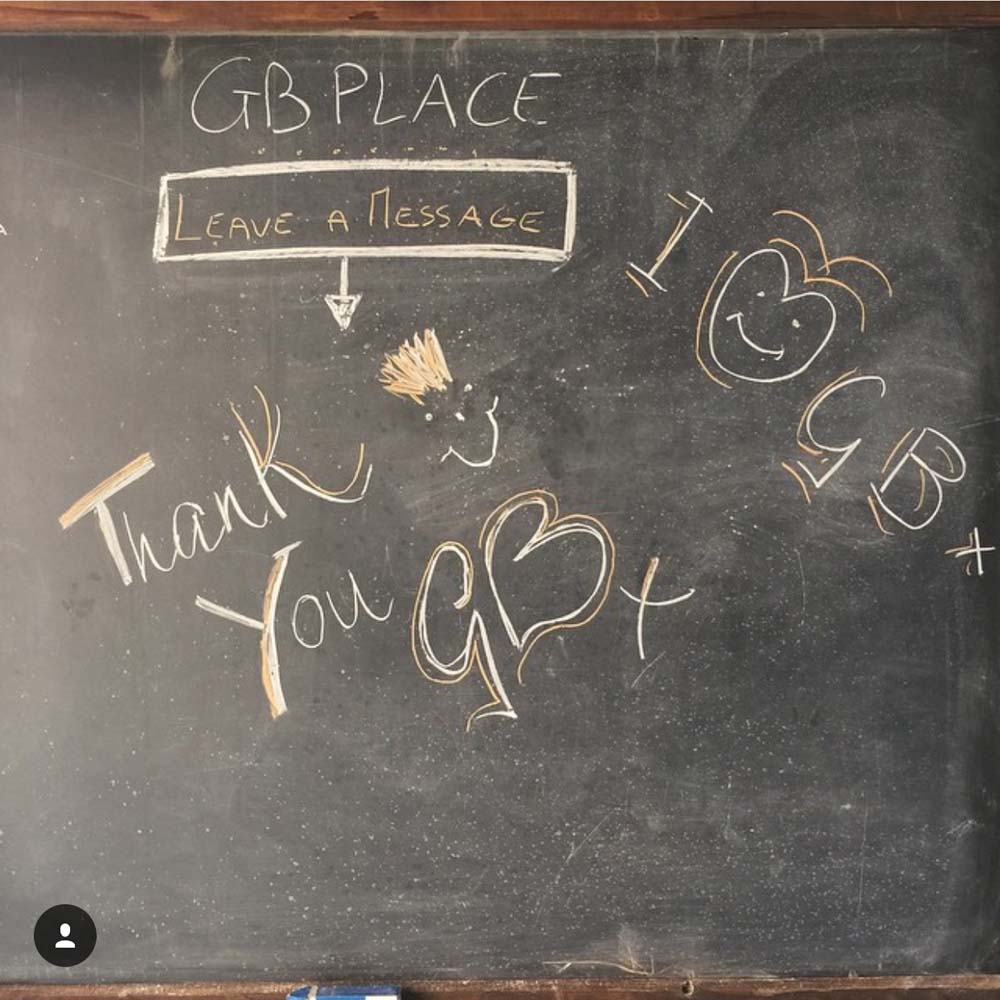 GB PLACE
LEAVE A MESSAGE
I
GB +
Thank
You GB +